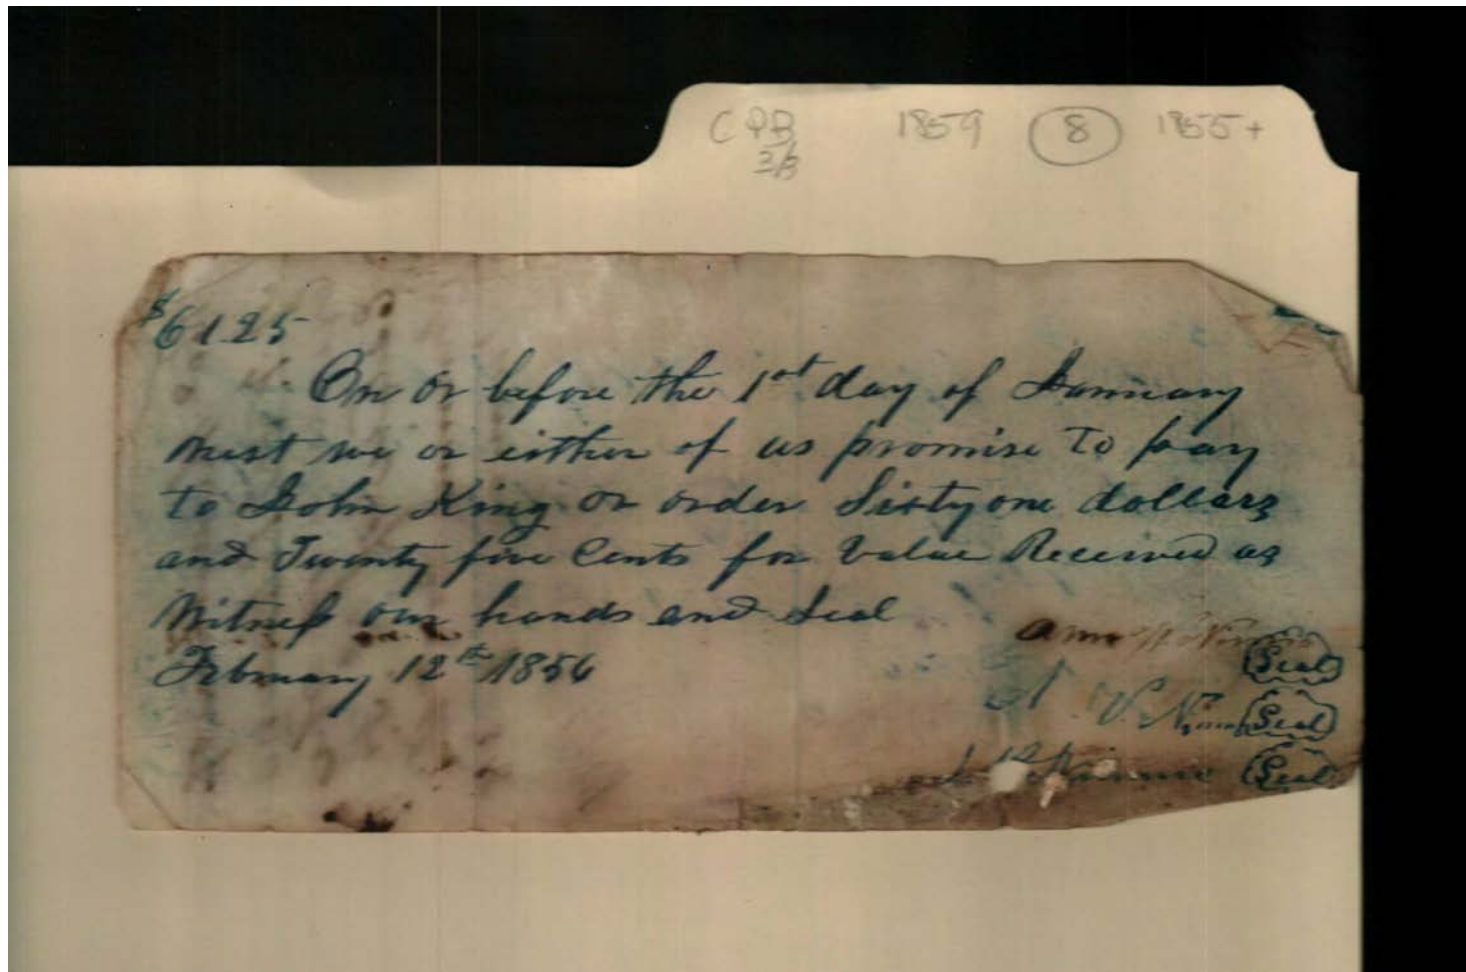 CPB 1859 8 1855+
3/3
$6125
On or before the 1st day of January
next we or either of us promise To pay
to John King or order Sixty one dollars
and Twenty five Cents for Value Received as
Witness our hands and Seal
February 12th 1856
(Seal)
(Seal)
(Seal)